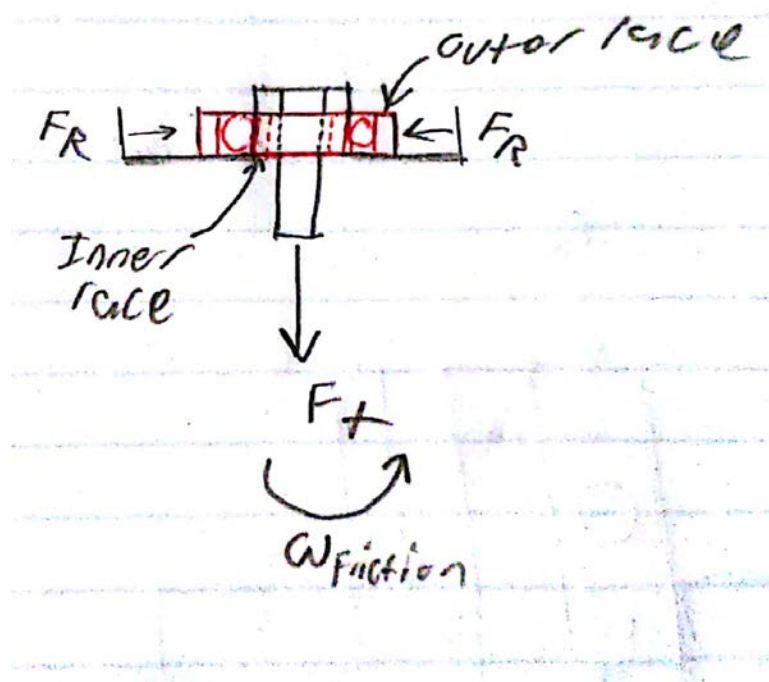 outer race
F_R
F_R
Inner
race
F_t
ω Friction